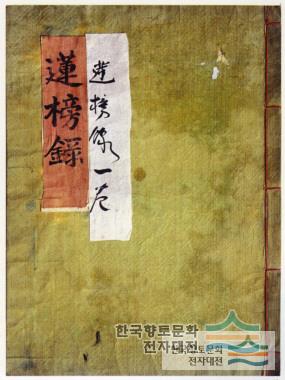 蓮榜錄
蓮榜錄一卷
한국향토문화
전자대전
한국향토문화
전자대전